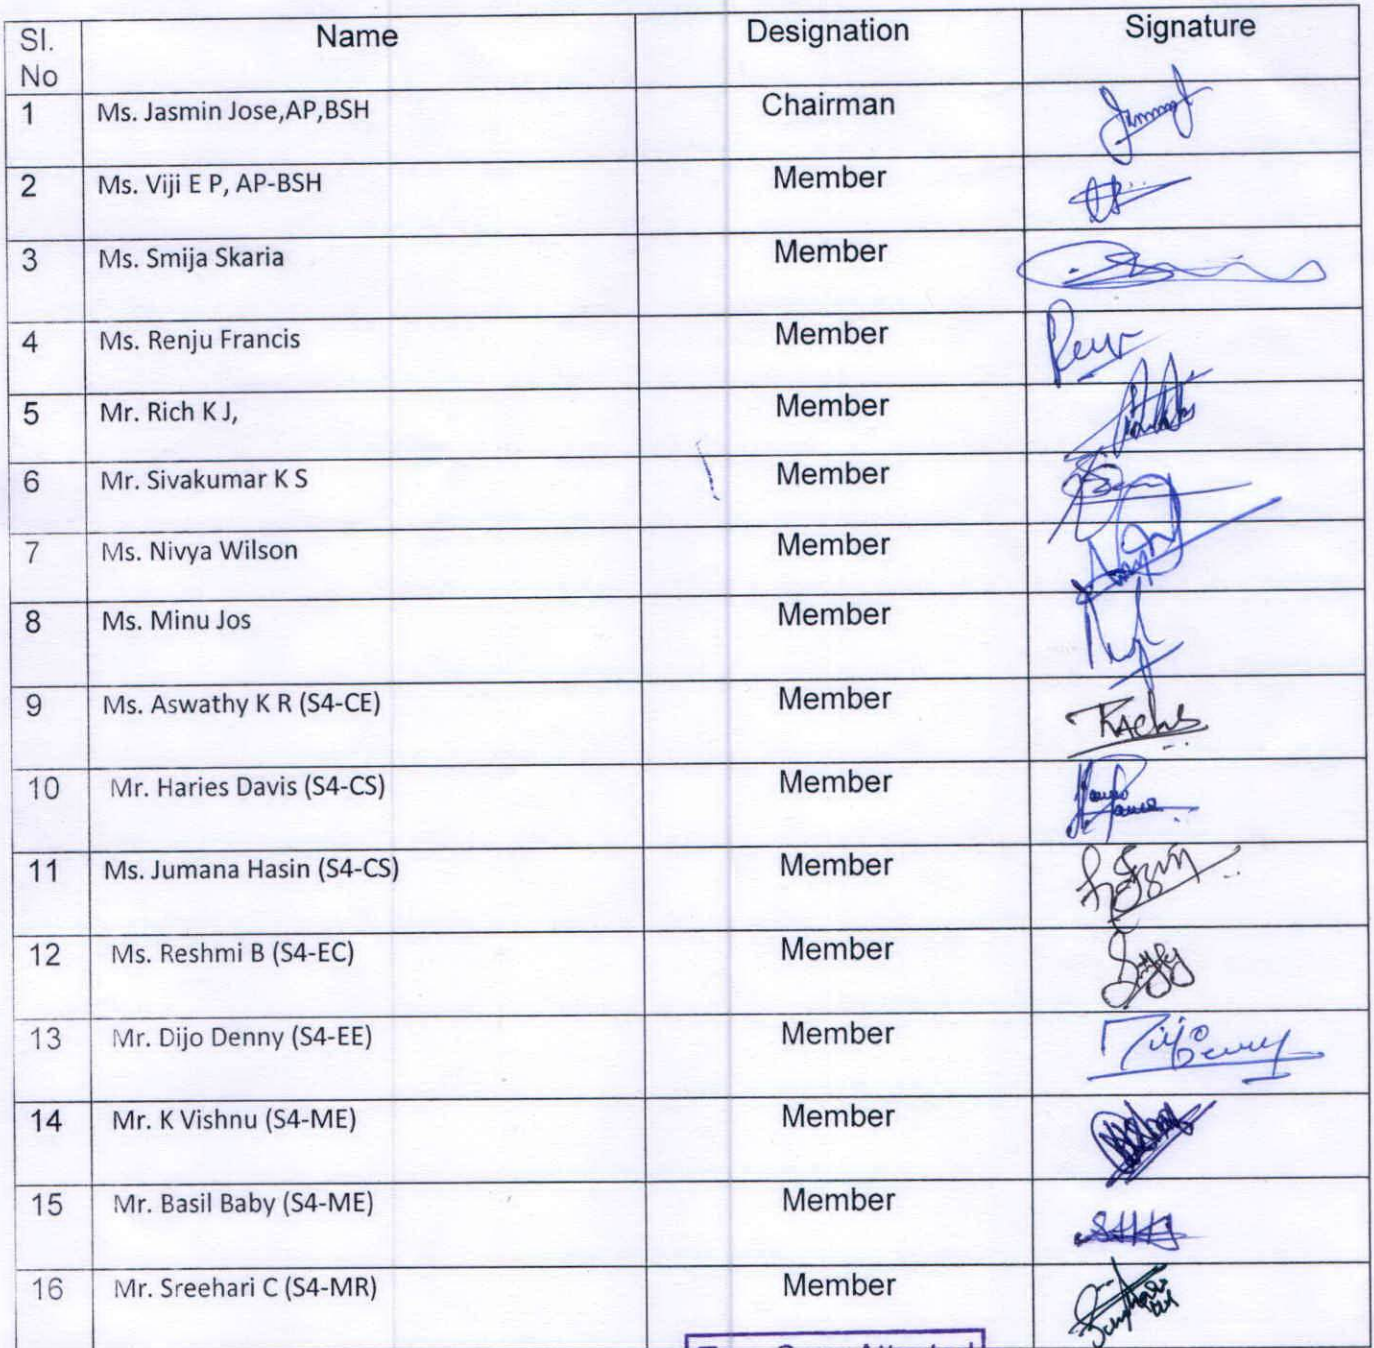 Sl. No Name Designation Signature
1 Ms. Jasmin Jose,AP,BSH Chairman
2 Ms. Viji E P, AP-BSH Member
3 Ms. Smija Skaria Member
4 Ms. Renju Francis Member
5 Mr. Rich K J, Member
6 Mr. Sivakumar K S Member
7 Ms. Nivya Wilson Member
8 Ms. Minu Jos Member
9 Ms. Aswathy K R (S4-CE) Member
10 Mr. Haries Davis (S4-CS) Member
11 Ms. Jumana Hasin (S4-CS) Member
12 Ms. Reshmi B (S4-EC) Member
13 Mr. Dijo Denny (S4-EE) Member Dijo Denny
14 Mr. K Vishnu (S4-ME) Member
15 Mr. Basil Baby (S4-ME) Member
16 Mr. Sreehari C (S4-MR) Member